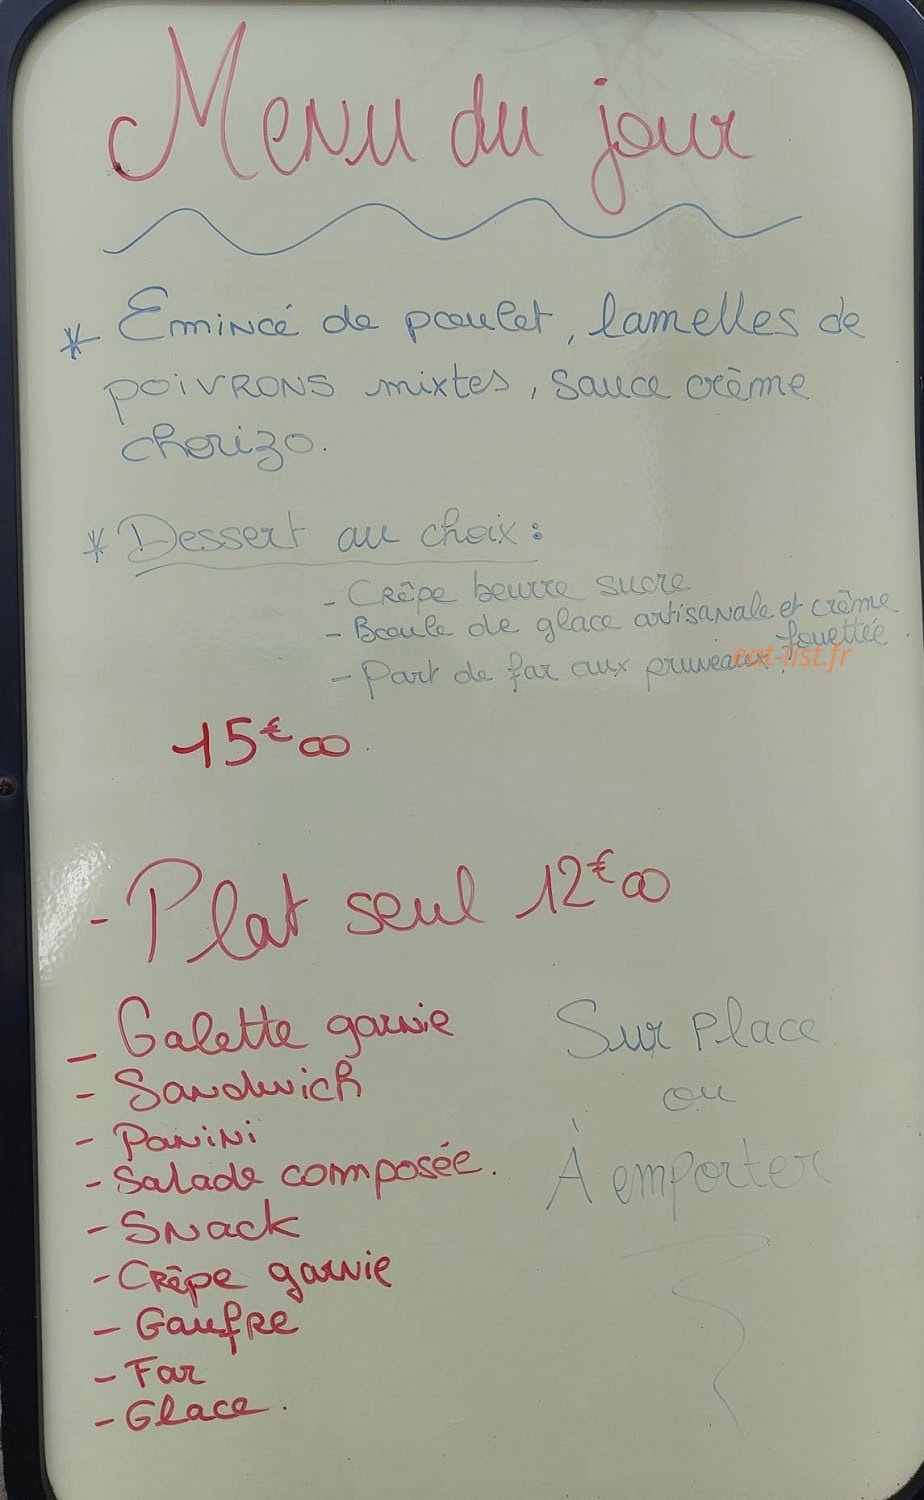 Menu du jour
* Emincé de poulet, lamelles de
poivrons mixtes, sauce crème
chorizo.
* Dessert au choix :
- Crêpe beurre sucre
- Boule de glace artisanale et crème
fouettée
- Part de far aux pruneaux.
eat-list.fr
15€00
- Plat seul 12€00
- Galette garnie
- Sandwich
- Panini
- Salade composée.
- Snack
- Crêpe garnie
- Gaufre
- Far
- Glace.
Sur place
ou
À emporter